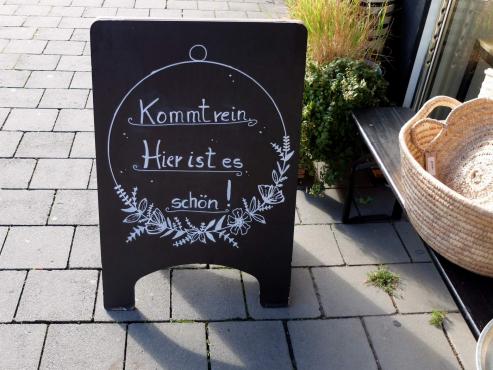 Kommt rein,
Hier ist es
schön!